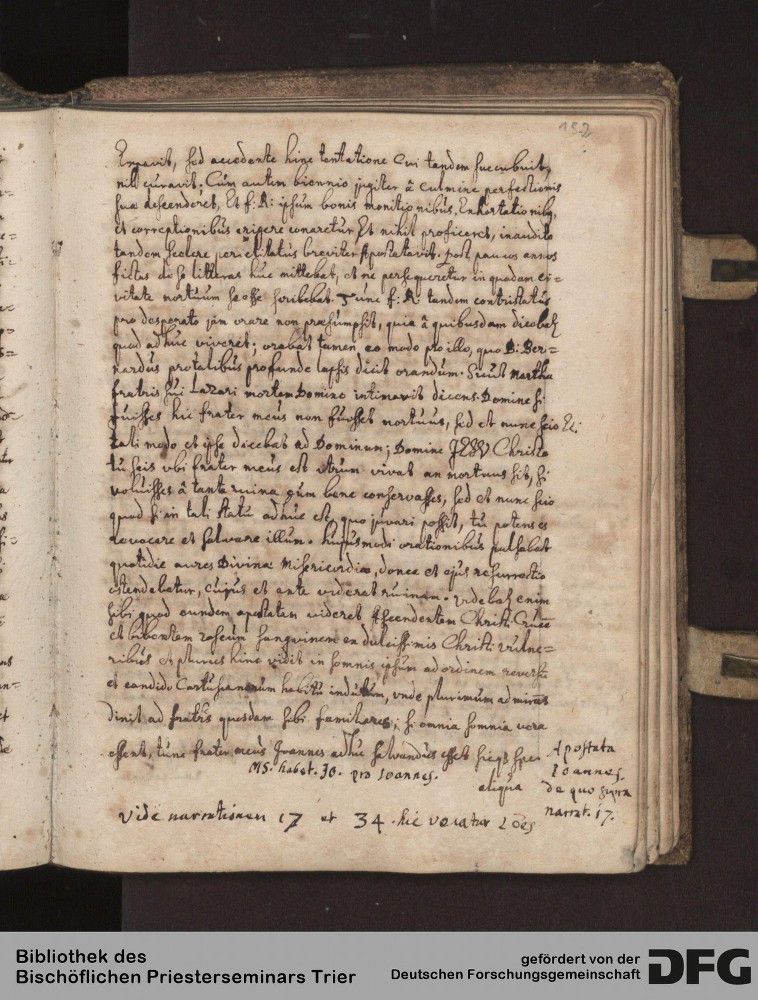 152
Erravit, sed accedente hinc tentatione Cui tandem succubuit,
nil curavit. Cùm autem biennio jugiter â culmine perfectionis
suæ descenderet, Et f: R: ipsum bonis monitionibus, Exhortationibq,
et correptionibus erigere conaretur Et nihil proficeret, inaudito
tandem scelere periclitatus breviter Apostatavit. post paucos annos
fictas de se litteras huc mittebat, et ne persequeretur in quadam ci=
vitate mortuum se esse scribebat. Tunc f: R: tandem contristatus
pro desperato jàm orare non præsumpsit, quia â quibusdam dicebat
quod adhuc viveret; orabat tamen eo modo pro illo, quo B: Ber=
nardus pro talibus profunde lapsis dicit orandum. Sicut Martha
fratris sui Lazari mortem Domino intimavit dicens. Domine si
fuisses hic frater meus non fuisset mortuus, sed et nunc scio Et:
tali modo et ipse dicebat ad Dominum; Domine JESV Christe
tu scis ubi frater meus est utrum vivat an mortuus sit, si
voluisses â tanta ruina eum bene conservasses, sed et nunc scio
quod si in tali statu adhuc est, quo juvari possit, tu potens es
revocare et salvare illum. hujusmodi orationibus pulsabat
quotidie aures Divinæ Misericordiæ, donec et ejus resurrectio
ostendebatur, cujus et ante viderat ruinam. videbat enim
sibi quod eundem apostatam videret Ascendentem Christi Cruce
et bibentem roseum sanguinem ex dulcissimis Christi vulne=
ribus et pluries hinc vidit in somnis ipsum ad ordinem reversu
et candido Cartusianorum habitu indutum, unde plurimum admirans
dixit ad fratres quosdam sibi familiares; si omnia somnia vera
essent, tunc frater meus Joannes adhuc salvandus esset sicqs spes
aliqua
MS. habet. Jo. pro Ioannes.
Apostata
Ioannes.
de quo supra
narrat. 17.
Vide narrationem 17 et 34. hic vocatur
Bibliothek des
Bischöflichen Priesterseminars Trier
gefördert von der
Deutschen Forschungsgemeinschaft
DFG